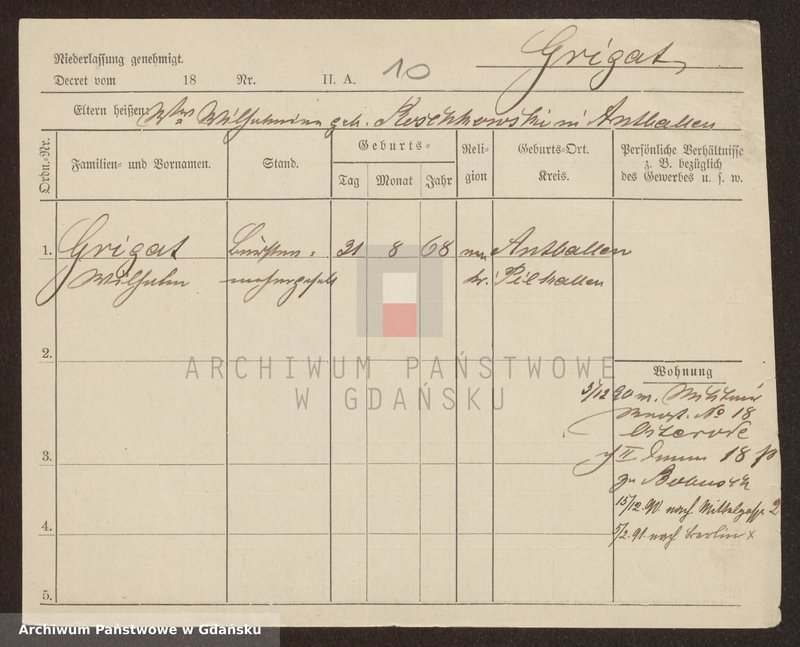 Grigat
Niederlassung genehmigt.
Decret vom 18 Nr. II. A. 10
Eltern heißen: Wilhelmine geb. Koschkowski in Antballen
Ordn.-Nr. Familien- und Vornamen. Stand. Geburts- Tag Monat Jahr Religion Geburts-Ort. Kreis. Persönliche Verhältnisse z. B. bezüglich des Gewerbes u. s. w.
1. Grigat Bürsten- 31 8 68 Antballen
Wilhelm machergesell Kr. Pilkallen
2.
Wohnung
5/12 90 m. Militär
No 18
Osterode
3.
II Damm 18 p
zu
15/12. 90. nach Mittelgasse 2
4.
/2. 91. nach Berlin x
5.
ARCHIWUM PAŃSTWOWE
W GDAŃSKU
Archiwum Państwowe w Gdańsku